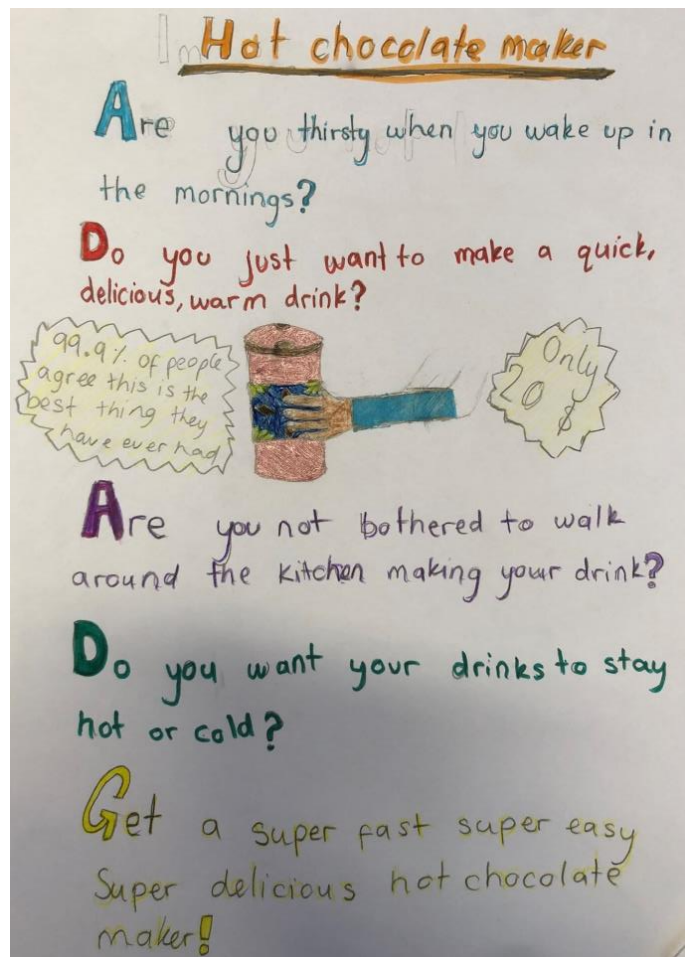 Hot chocolate maker
Are you thirsty when you wake up in
the mornings?
Do you just want to make a quick,
delicious, warm drink?
99.9% of people
agree this is the
best thing they
have ever had
Only
20 $
Are you not bothered to walk
around the kitchen making your drink?
Do you want your drinks to stay
hot or cold?
Get a super fast super easy
Super delicious hot chocolate
maker!